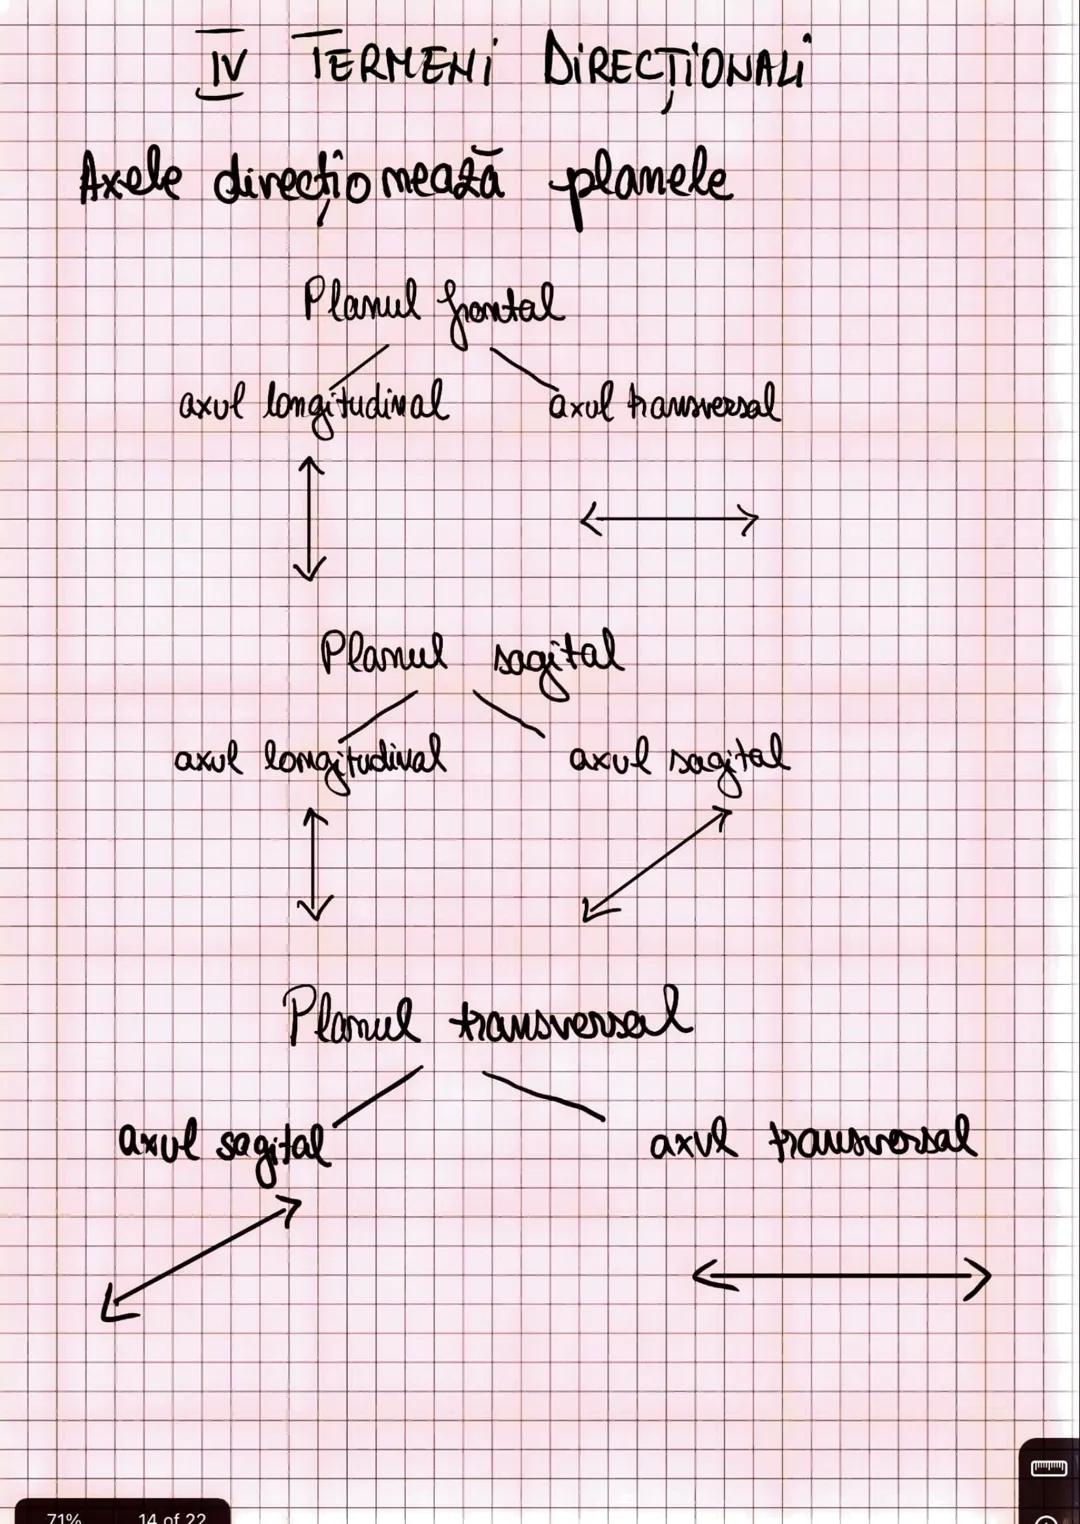 IV TERMENI DIRECȚIONALI
Axele direcționează planele
Planul frontal
axul longitudinal axul transversal
Planul sagital
axul longitudinal axul sagital
Planul transversal
axul sagital axul transversal
71% 14 of 22